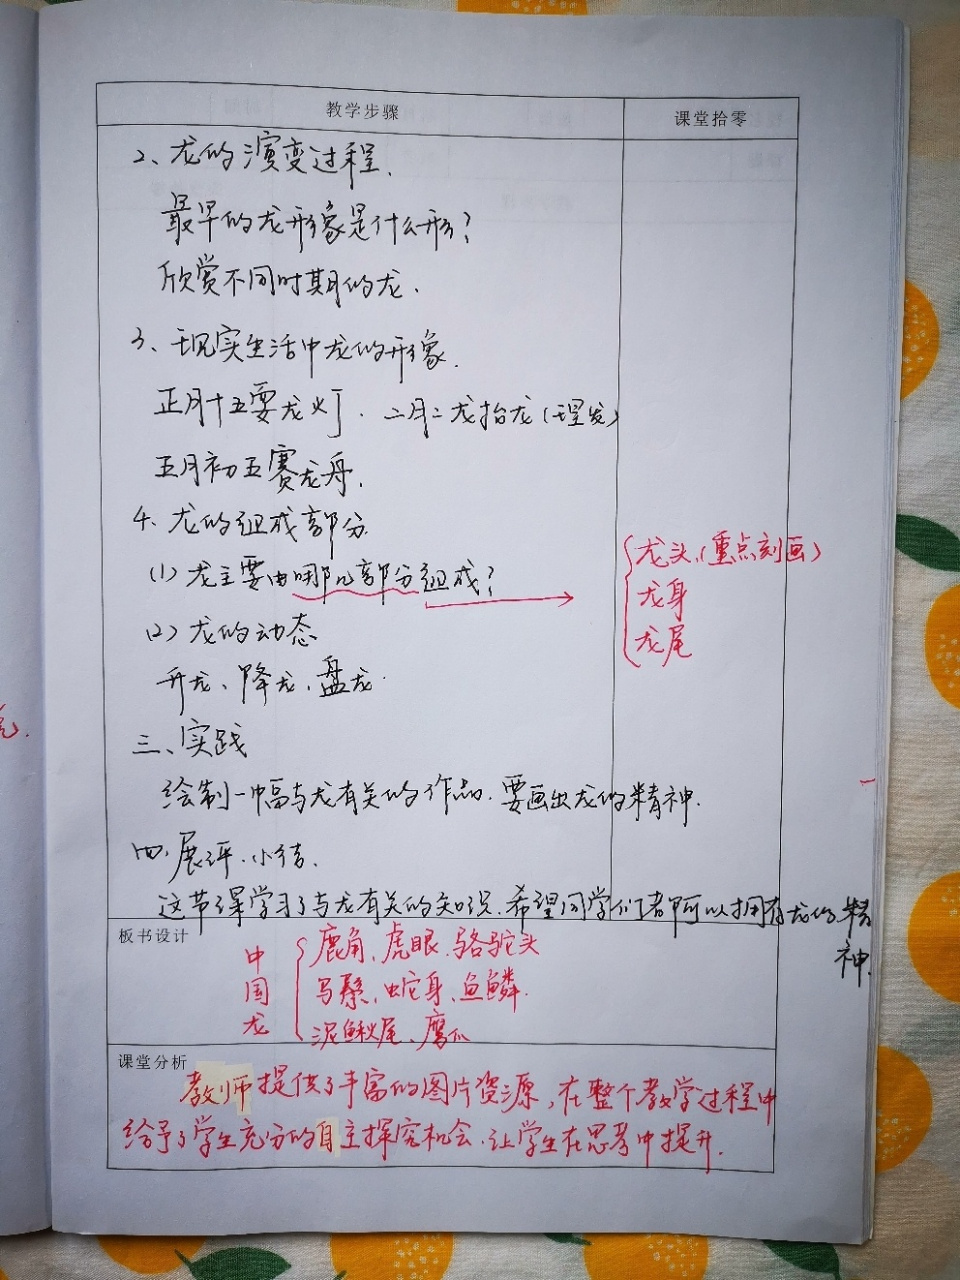 教学步骤
课堂拾零
2、龙的演变过程.
最早的龙形象是什么形?
欣赏不同时期的龙.
3、现实生活中龙的形象.
正月十五耍龙灯. 二月二龙抬龙(理发)
五月初五赛龙舟.
4. 龙的组成部分.
(1) 龙主要由哪几部分组成?
龙头(重点刻画)
龙身
龙尾
(2) 龙的动态
升龙、降龙、盘龙.
三、实践
绘制一幅与龙有关的作品.要画出龙的精神.
四.展评.小结.
这节课学习了与龙有关的知识.希望同学们都可以拥有龙的精
神.
板书设计
中国龙
鹿角、虎眼、骆驼头
马鬃、蛇身、鱼鳞.
泥鳅尾、鹰爪
课堂分析
教师提供了丰富的图片资源,在整个教学过程中
给予了学生充分的自主探究机会.让学生在思考中提升.